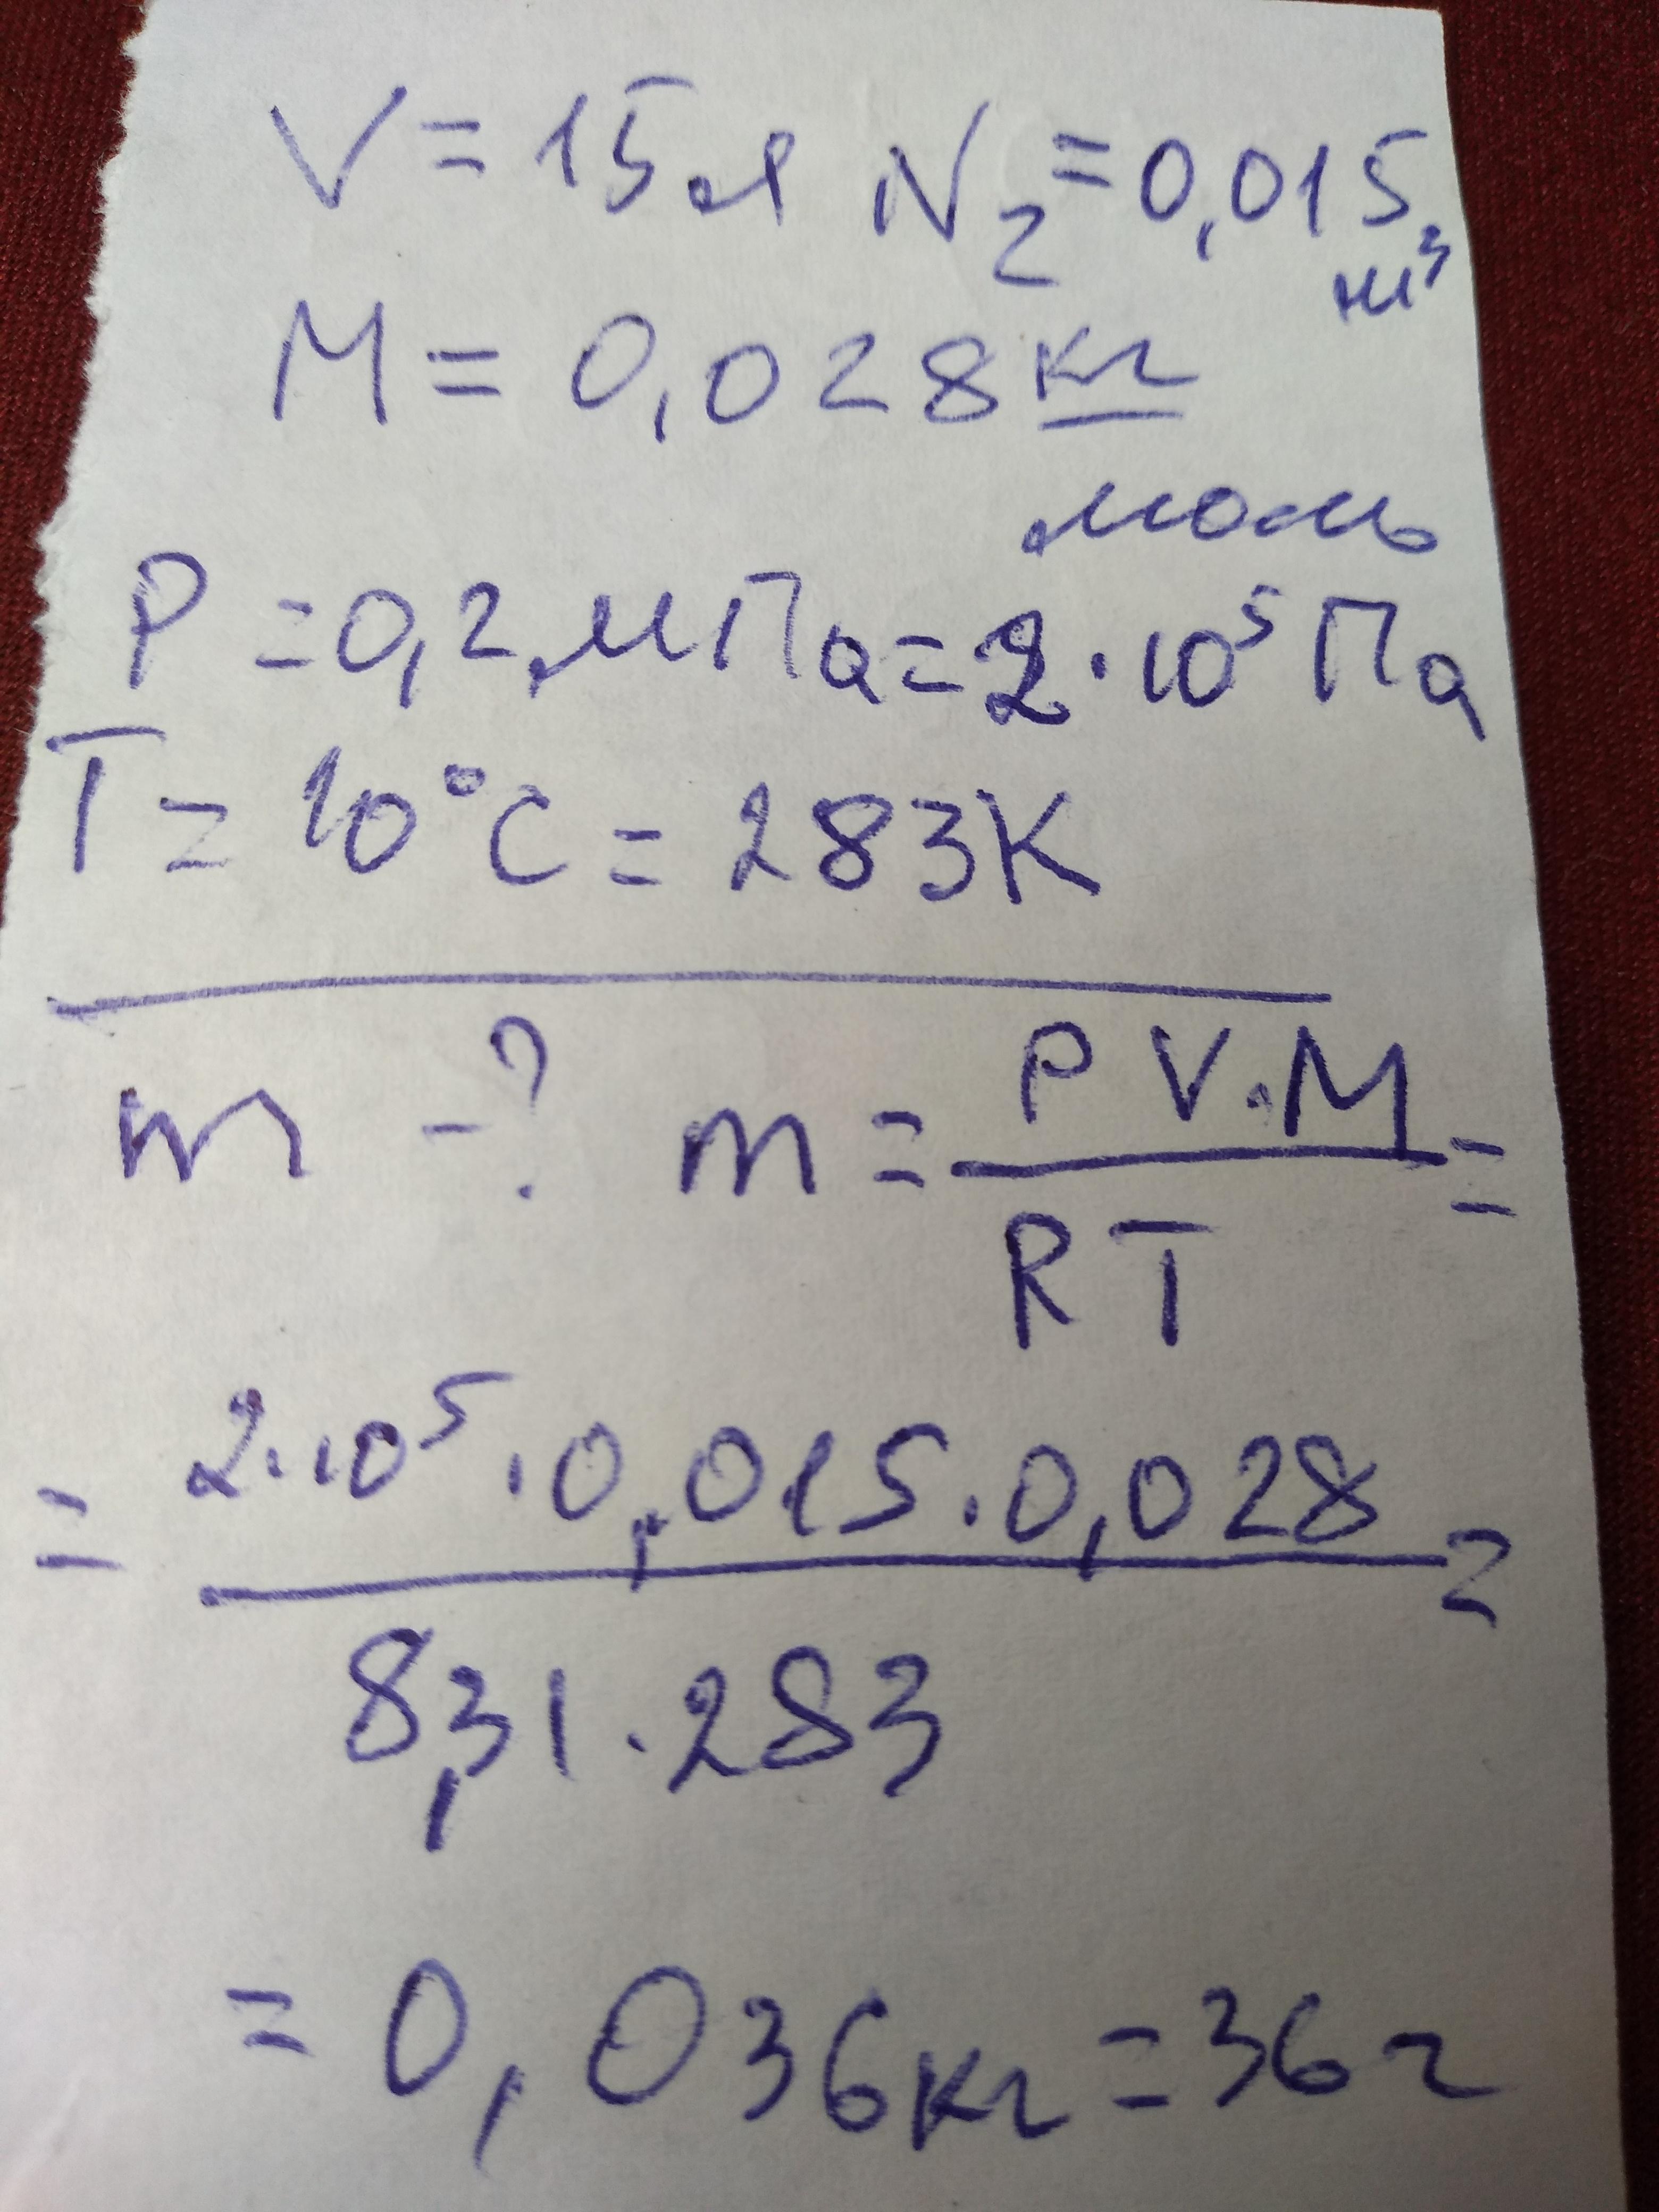 V = 15л N₂ = 0,015 м³
M = 0,028 кг
моль
P = 0,2 мПа = 2·10⁵ Па
T = 10°C = 283K
m - ? m = P V·M =
R T
= 2·10⁵·0,015·0,028 =
8,31·283
= 0,036кг = 36г